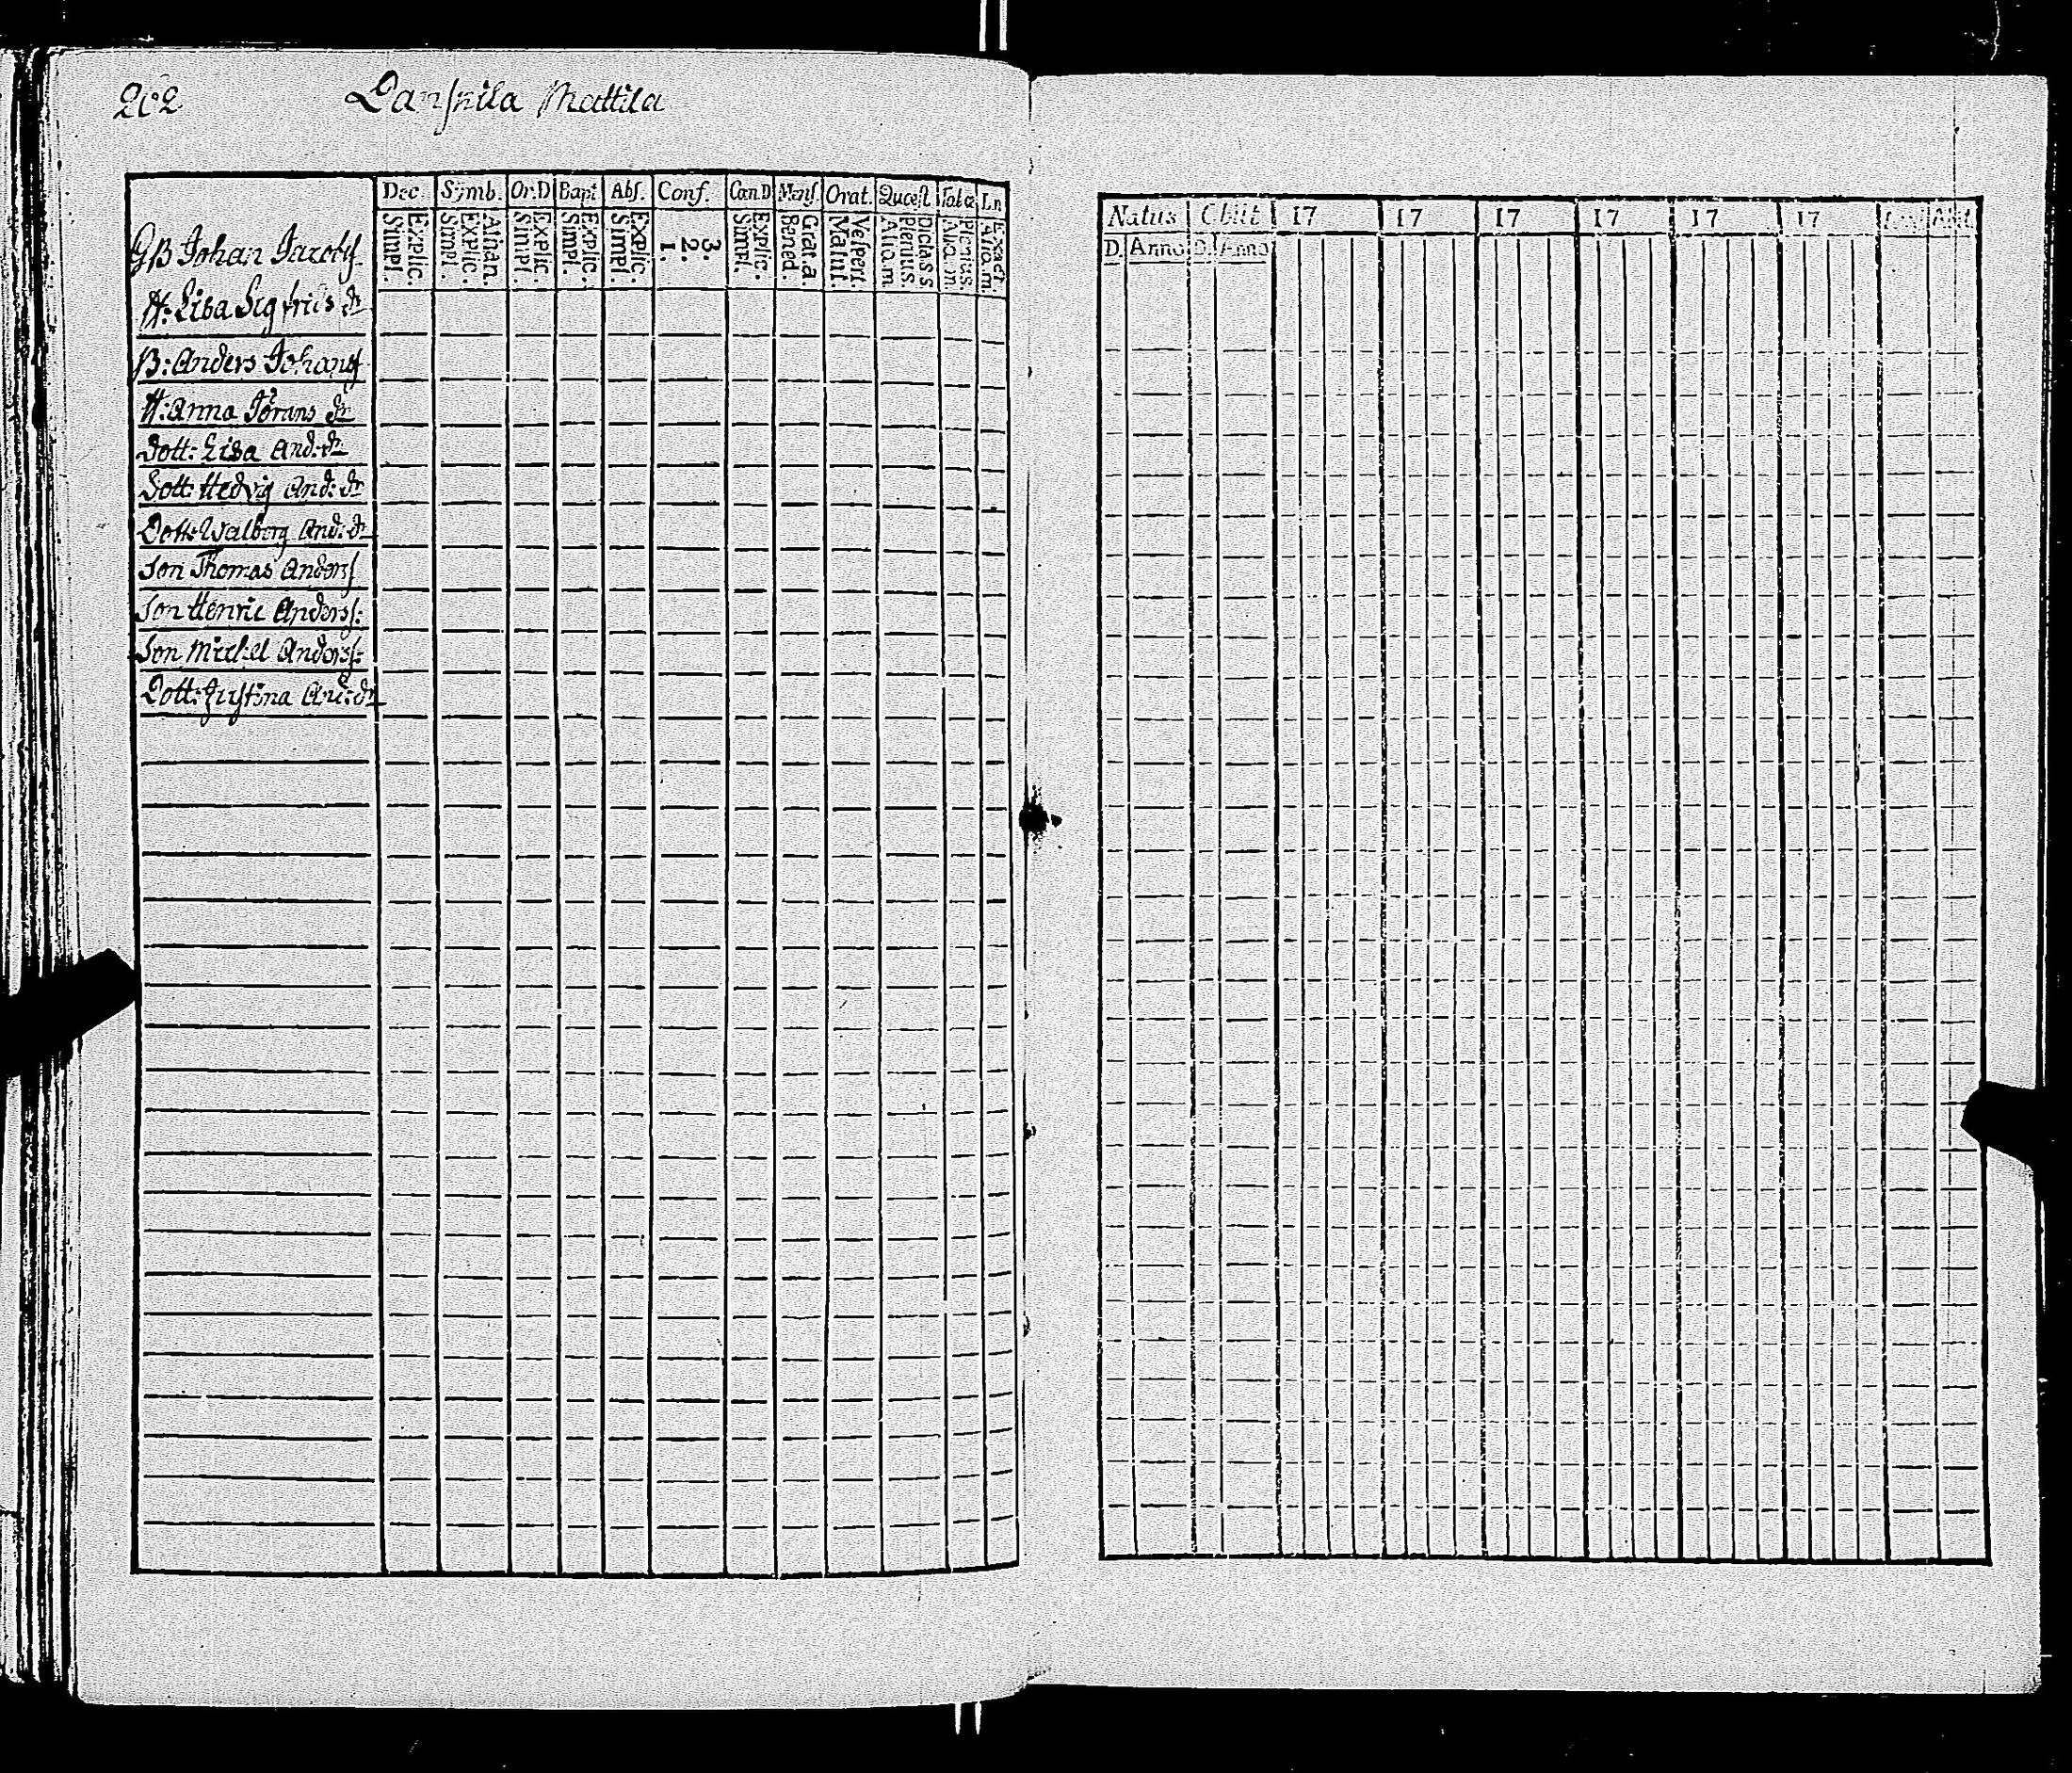 202 Danskila Mattila
Dec. Symb. Or.D Bapt Abs. Conf. Cœn.D Mens. Orat. Quæst Tabæ Ln
Explic. Simpl. Athan. Explic. Simpl. Explic. Simpl. Explic. Simpl. Explic. Simpl. 3. 2. 1. Explic. Simpl. Grat.a. Bened. Vespert. Matut. Dict.a s s Plenius. Aliq.m Plenius. Aliq.m Exact. Aliq.m.
GB Johan Jacobs.
H: Lisa Sigfrids dr
B: Anders Johans
H: Anna Jörans dr
Dott: Lisa And: dr
Dott: Hedvig And: dr
Dott: Walborg And: dr
Son Thomas Anders
Son Henric Anderss:
Son Michel Anderss:
Dott: Justina And: dr
Natus Obiit 17 17 17 17 17 17
D. Anno D. Anno